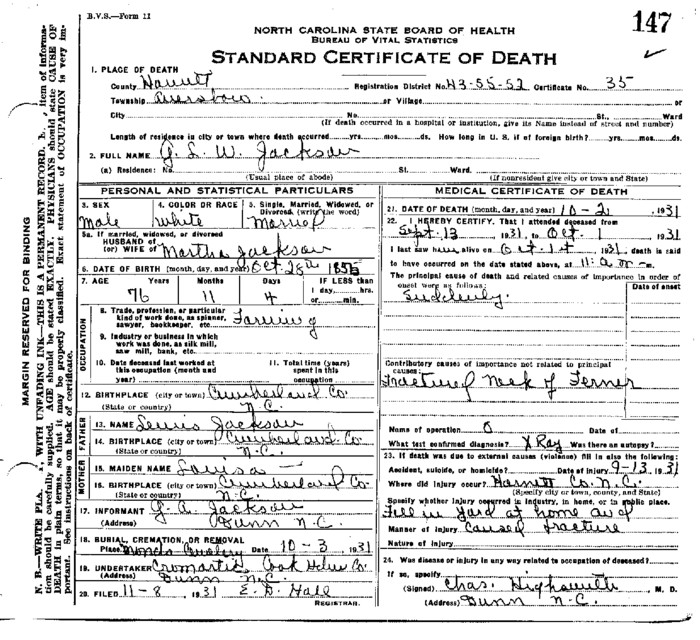 B.V.S.—Form 11
147
NORTH CAROLINA STATE BOARD OF HEALTH
BUREAU OF VITAL STATISTICS
STANDARD CERTIFICATE OF DEATH
1. PLACE OF DEATH
County Harnett Registration District No. 43-55-52 Certificate No. 35
Township Averasboro or Village or
City No. St., Ward
(If death occurred in a hospital or institution, give its Name instead of street and number)
Length of residence in city or town where death occurred yrs. mos. ds. How long in U. S. if of foreign birth? yrs. mos. ds.
2. FULL NAME G. L. W. Jackson
(a) Residence: No. St. Ward
(Usual place of abode) (If nonresident give city or town and State)
PERSONAL AND STATISTICAL PARTICULARS
3. SEX Male
4. COLOR OR RACE White
5. Single, Married, Widowed, or Divorced (write the word) Married
5a. If married, widowed, or divorced
HUSBAND of
(or) WIFE of Martha Jackson
6. DATE OF BIRTH (month, day, and year) Oct. 28th 1855
7. AGE Years Months Days IF LESS than
76 11 4 1 day, hrs.
or min.
OCCUPATION
8. Trade, profession, or particular
kind of work done, as spinner,
sawyer, bookkeeper, etc. Farming
9. Industry or business in which
work was done, as silk mill,
saw mill, bank, etc.
10. Date deceased last worked at
this occupation (month and
year)
11. Total time (years)
spent in this
occupation
12. BIRTHPLACE (city or town) Cumberland Co.
(State or country) N.C.
FATHER
13. NAME Lewis Jackson
14. BIRTHPLACE (city or town) Cumberland Co.
(State or country) N.C.
MOTHER
15. MAIDEN NAME Louisa —
16. BIRTHPLACE (city or town) Cumberland Co.
(State or country) N.C.
17. INFORMANT G. A. Jackson
(Address) Dunn N.C.
18. BURIAL, CREMATION, OR REMOVAL
Place Cemetery Date 10-3 1931
19. UNDERTAKER Cromartie Cook Co.
(Address) Dunn N.C.
20. FILED 11-8, 1931 E. D. Hall
REGISTRAR.
MEDICAL CERTIFICATE OF DEATH
21. DATE OF DEATH (month, day, and year) 10-2, 1931
22. I HEREBY CERTIFY, That I attended deceased from
Sept. 13 1931, to Oct. 1 1931
I last saw him alive on Oct. 1st 1931, death is said
to have occurred on the date stated above, at 11: a m.
The principal cause of death and related causes of importance in order of
onset were as follows: Date of onset
Suddenly.
Contributory causes of importance not related to principal
cause:
Fractured Neck of Femur
Name of operation 0 Date of
What test confirmed diagnosis? X Ray Was there an autopsy?
23. If death was due to external causes (violence) fill in also the following:
Accident, suicide, or homicide? Date of injury 9-13, 1931
Where did injury occur? Harnett Co. N.C.
(Specify city or town, county, and State)
Specify whether injury occurred in industry, in home, or in public place.
Fell in yard at home and
Manner of injury caused fracture
Nature of injury
24. Was disease or injury in any way related to occupation of deceased?
If so, specify
(Signed) Chas. Highsmith, M. D.
(Address) Dunn N.C.
MARGIN RESERVED FOR BINDING
N. B.—WRITE PLA , WITH UNFADING INK—THIS IS A PERMANENT RECORD. E , item of informa-
tion should be carefully supplied. AGE should be stated EXACTLY. PHYSICIANS should state CAUSE OF
DEATH in plain terms, so that it may be properly classified. Exact statement of OCCUPATION is very im-
portant. See instructions on back of certificate.